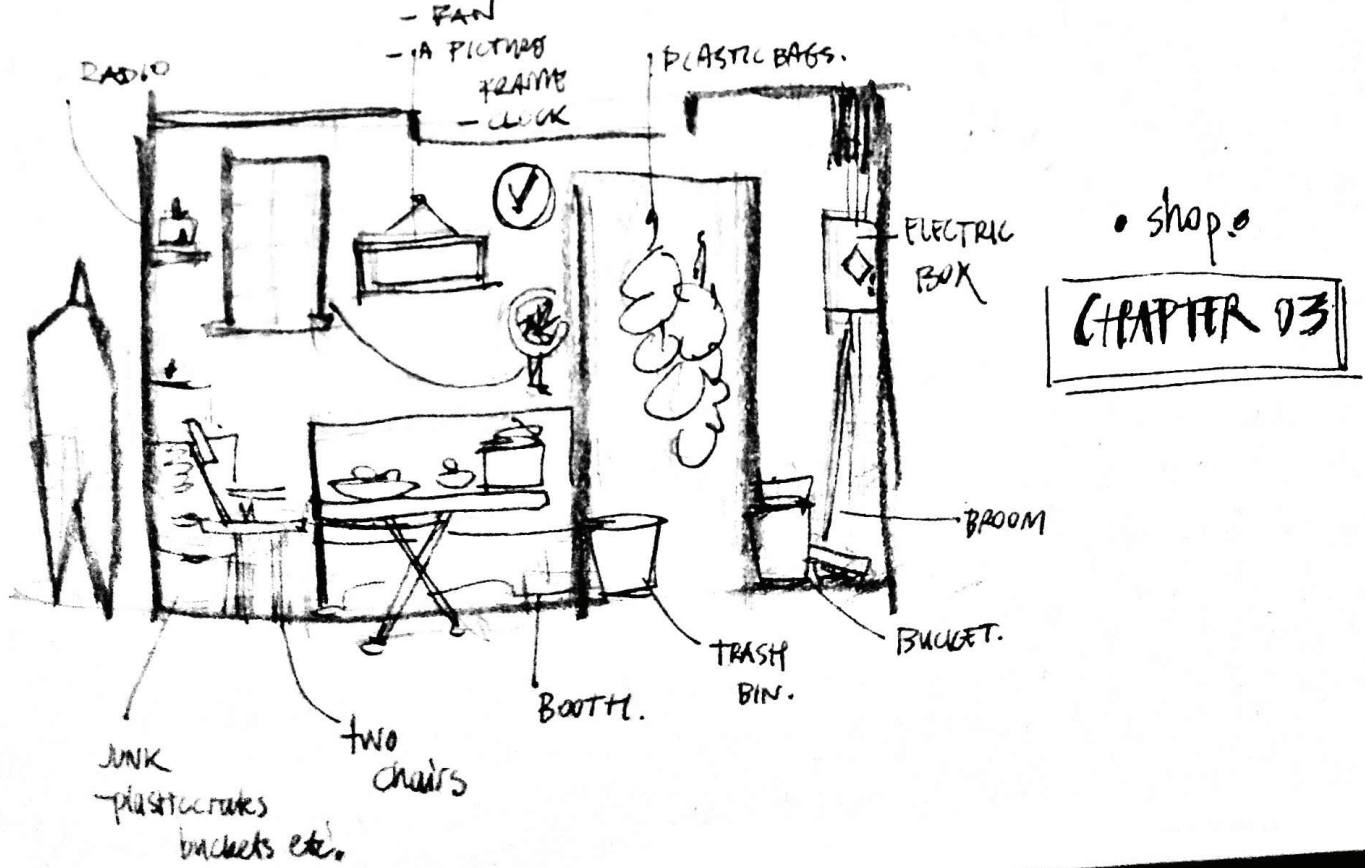 - FAN
- A PICTURE
FRAME
- CLOCK
RADIO
PLASTIC BAGS.
ELECTRIC
BOX
• shop •
CHAPTER 03
BROOM
BUCKET.
TRASH
BIN.
BOOTH.
two
chairs
JUNK
- plastic crates
buckets etc.